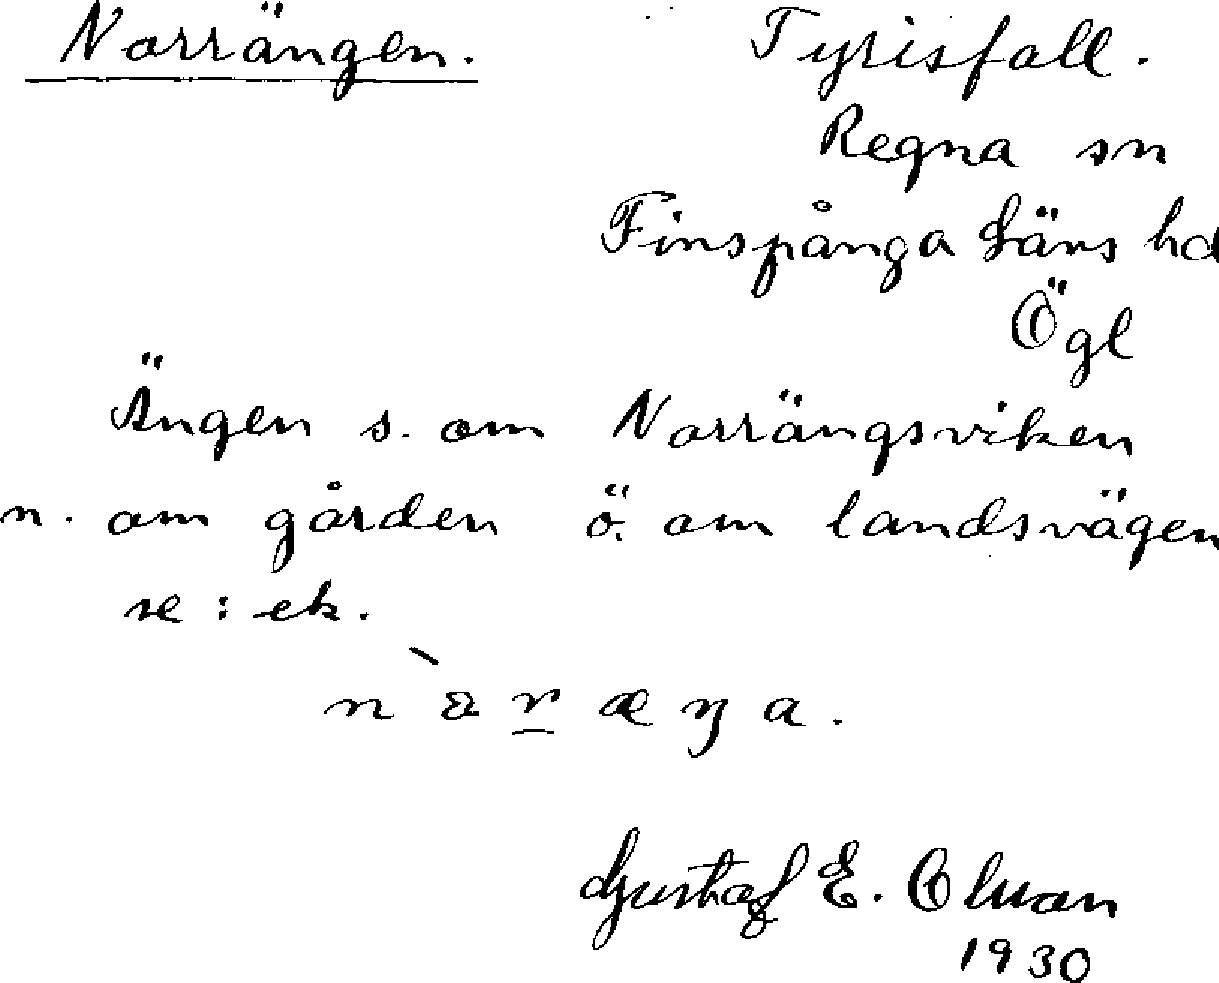 Norrängen. Tyrisfall.
Regna sn
Finspånga Läns hd
Ögl
Ängen s. om Norrängsviken
n. om gården ö. om landsvägen
se : ek.
Gustaf E.
1930